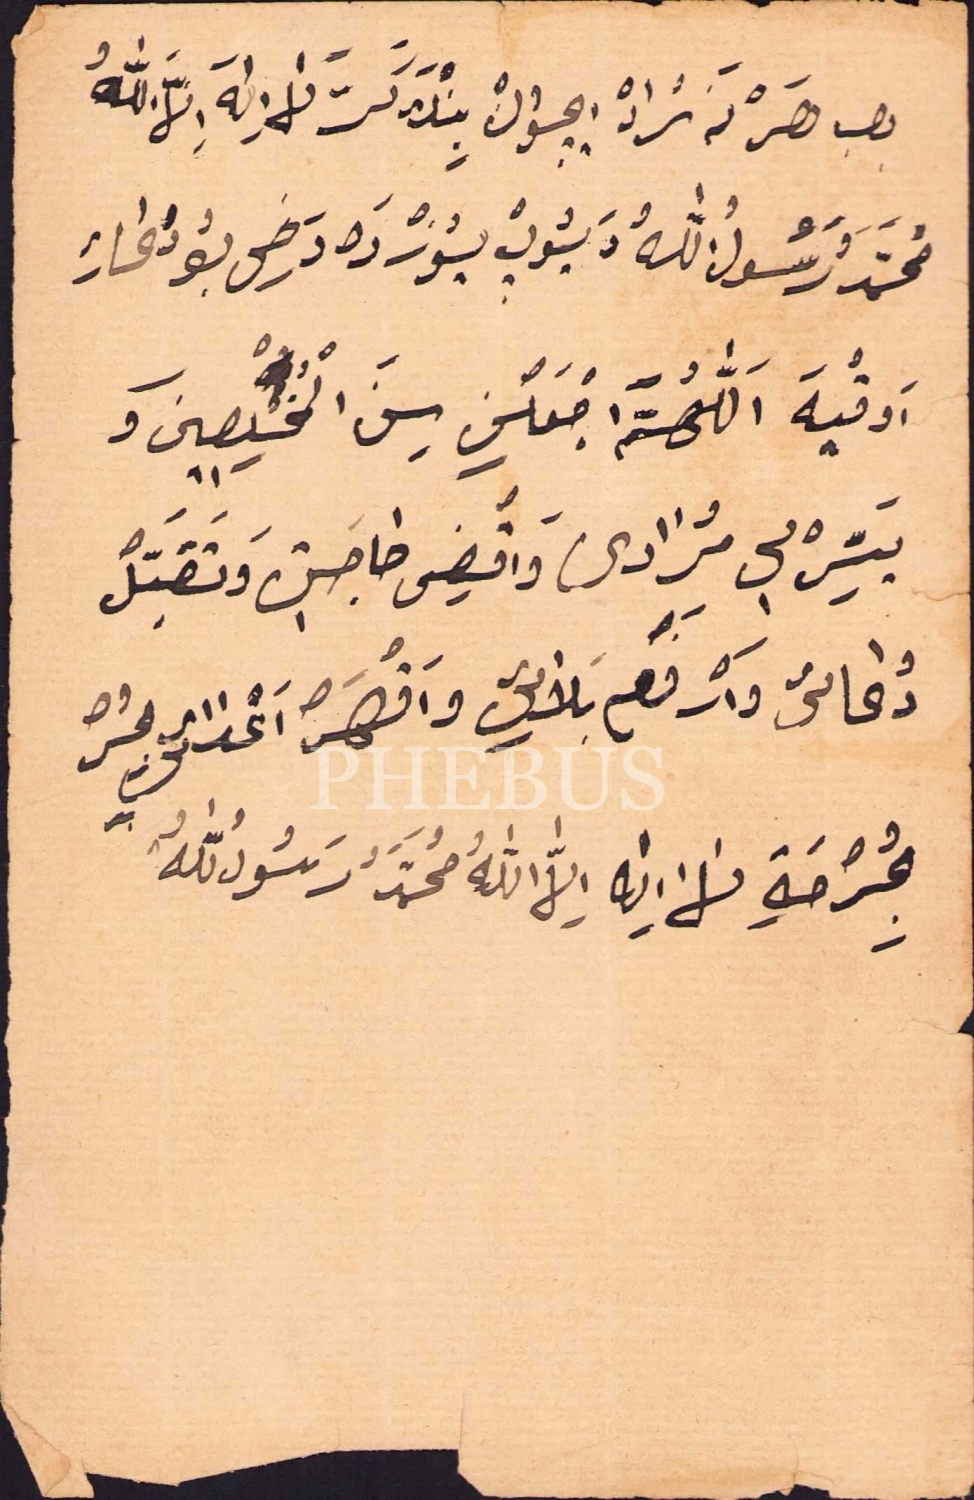 هَرْ نَه مُرَادْ اِيچُونْ بِيْكْ كَرَّه لَا اِلَهَ اِلَّا اللّٰهُ
مُحَمَّدٌ رَسُولُ اللّٰهُ دَيُوبْ يُوزْدَه بُو دُعَايِ
اَوقُيَه اَللّٰهُمَّ اجْعَلْنِي مِنَ الْمُخْلِصِينَ وَ
يَسِّرْ لِي مُرَادِى وَاقْضِى حَاجَتِى وَتَقَبَّلْ
دُعَائِى وَارْفَعْ بَلَائِى وَاقْهَرْ اَعْدَائِى
بِحُرْمَةِ لَا اِلٰه اِلَّا اللّٰهُ مُحَمَّدٌ رَسُولُ اللّٰهُ
PHEBUS